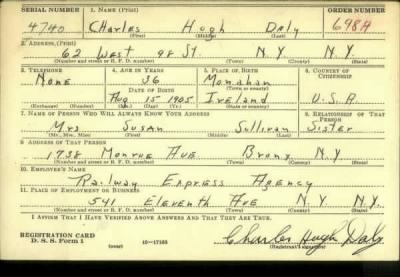 SERIAL NUMBER 1. NAME (Print) ORDER NUMBER
4740 Charles Hugh Daly 698A
(First) (Middle) (Last)
2. ADDRESS (Print)
62 West 98 St. N.Y. N.Y.
(Number and street or R. F. D. number) (Town) (County) (State)
3. TELEPHONE 4. AGE IN YEARS 5. PLACE OF BIRTH 6. COUNTRY OF CITIZENSHIP
None 36 Monahan
DATE OF BIRTH (Town or county)
Aug 15 1905 Ireland U.S.A.
(Exchange) (Number) (Mo.) (Day) (Yr.) (State or country)
7. NAME OF PERSON WHO WILL ALWAYS KNOW YOUR ADDRESS 8. RELATIONSHIP OF THAT PERSON
Mrs Susan Sullivan Sister
(Mr., Mrs., Miss) (First) (Middle) (Last)
9. ADDRESS OF THAT PERSON
1738 Monroe Ave. Bronx N.Y.
(Number and street or R. F. D. number) (Town) (County) (State)
10. EMPLOYER'S NAME
Railway Express Agency
11. PLACE OF EMPLOYMENT OR BUSINESS
541 Eleventh Ave N.Y. N.Y.
(Number and street or R. F. D. number) (Town) (County) (State)
I AFFIRM THAT I HAVE VERIFIED ABOVE ANSWERS AND THAT THEY ARE TRUE.
REGISTRATION CARD
D. S. S. Form 1 (over) 16—17105 Charles Hugh Daly
(Registrant's signature)